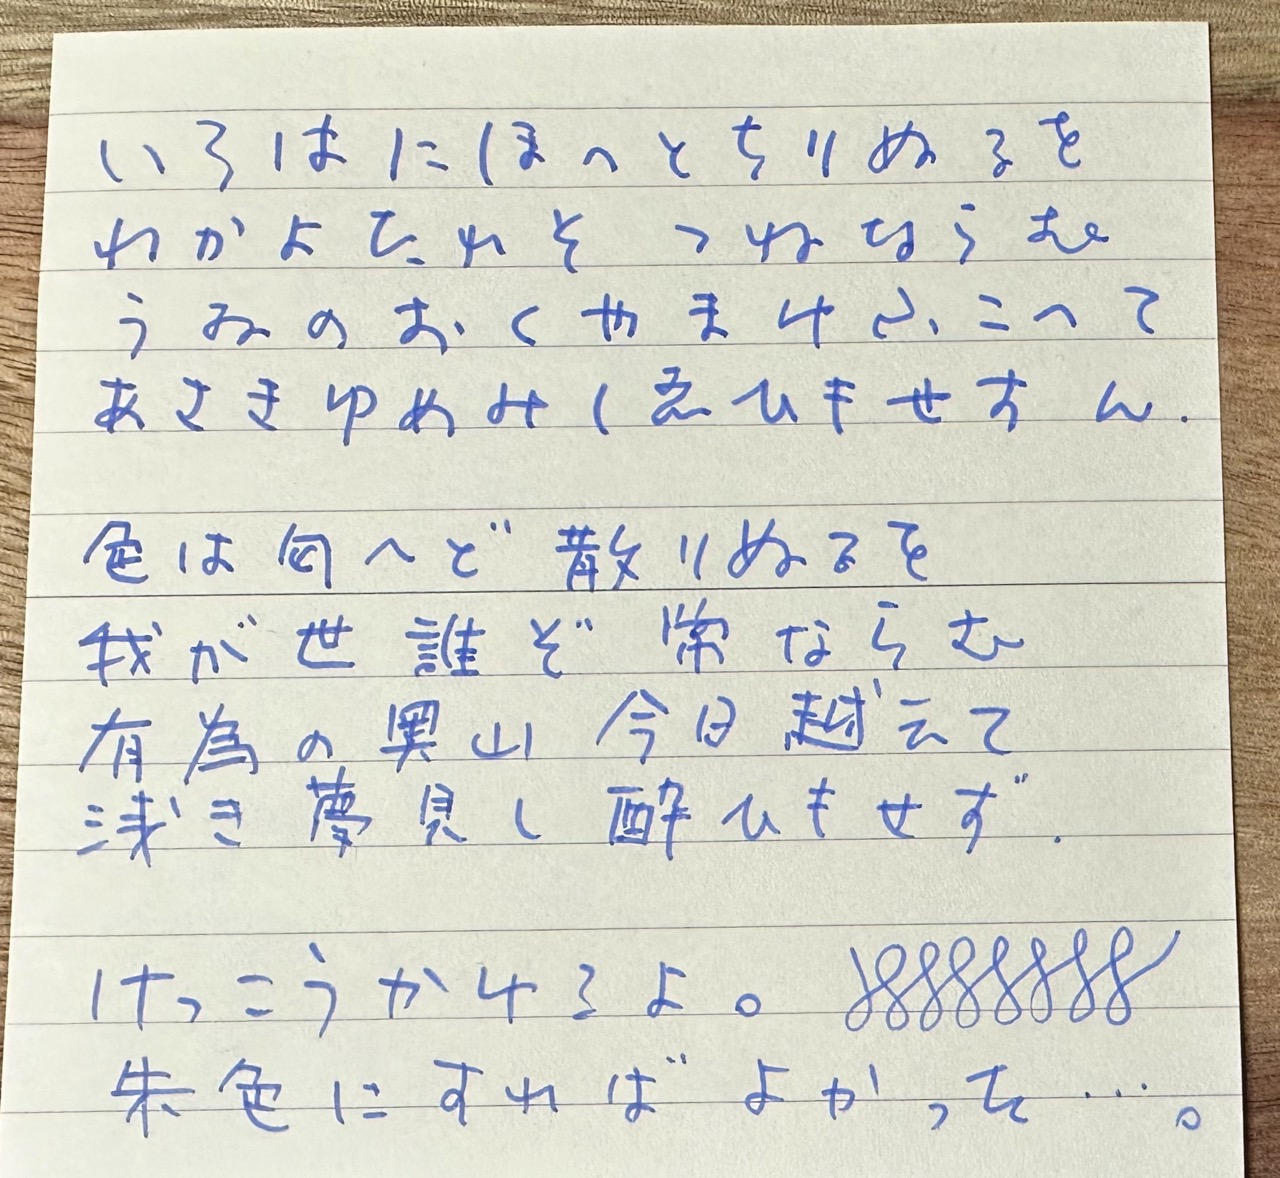 いろはにほへとちりぬるを
わかよたれそ つねならむ
うみのおくやまけふこへて
あさきゆめみしゑひもせすん.
色は匂へど 散りぬるを
我が世 誰ぞ 常ならむ
有為の奥山 今日 越えて
浅き夢見し 酔ひもせず.
けっこうかけるよ。
朱色にすればよかった…。